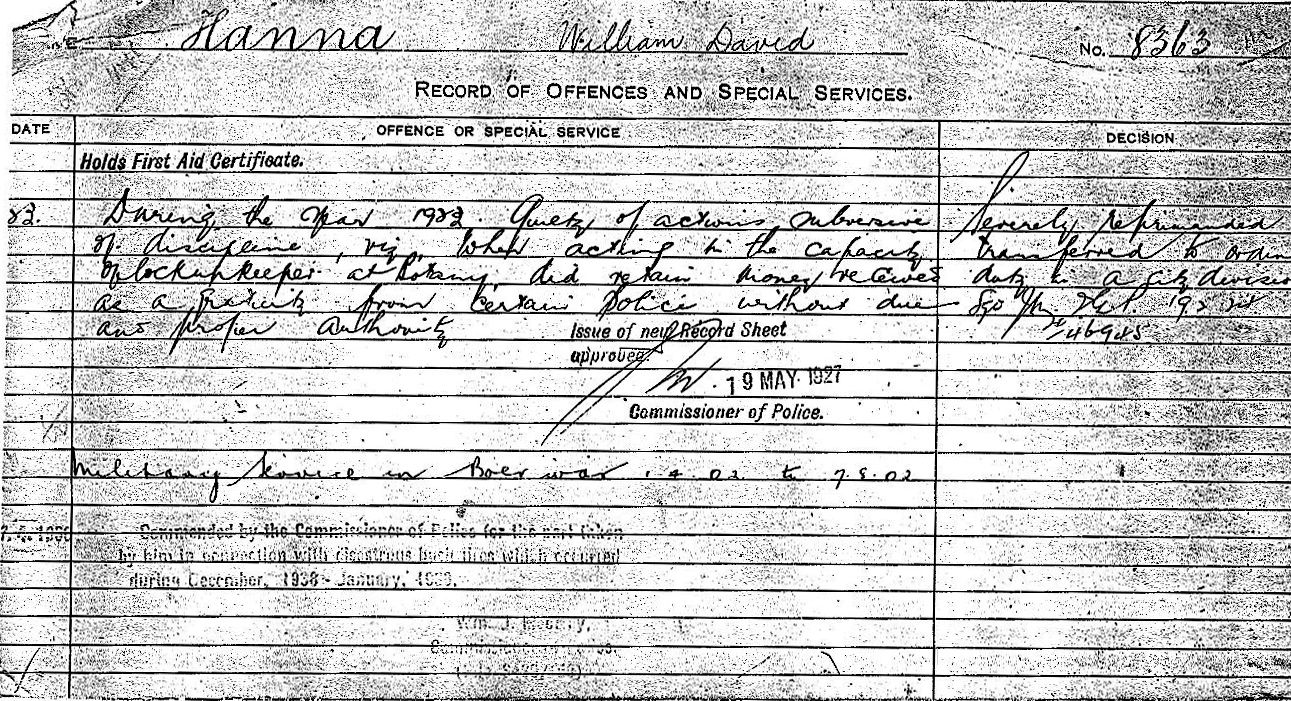 Hanna William David No. 8363
RECORD OF OFFENCES AND SPECIAL SERVICES.
DATE OFFENCE OR SPECIAL SERVICE DECISION
Holds First Aid Certificate.
During the year 1923. Guilty of actions subversive Severely reprimanded
of discipline, viz, when acting in the capacity transferred to
of lockupkeeper at Botany, did retain money received duty in a city division
as a gratuity from certain Police without due
and proper authority
Issue of new Record Sheet
approved.
19 MAY 1927
Commissioner of Police.
Military Service in Boer war 1.4.02 to 7.8.02
Commended by the Commissioner of Police for the part taken
by him in connection with disastrous bush fires which occurred
during December, 1938 - January, 1939.